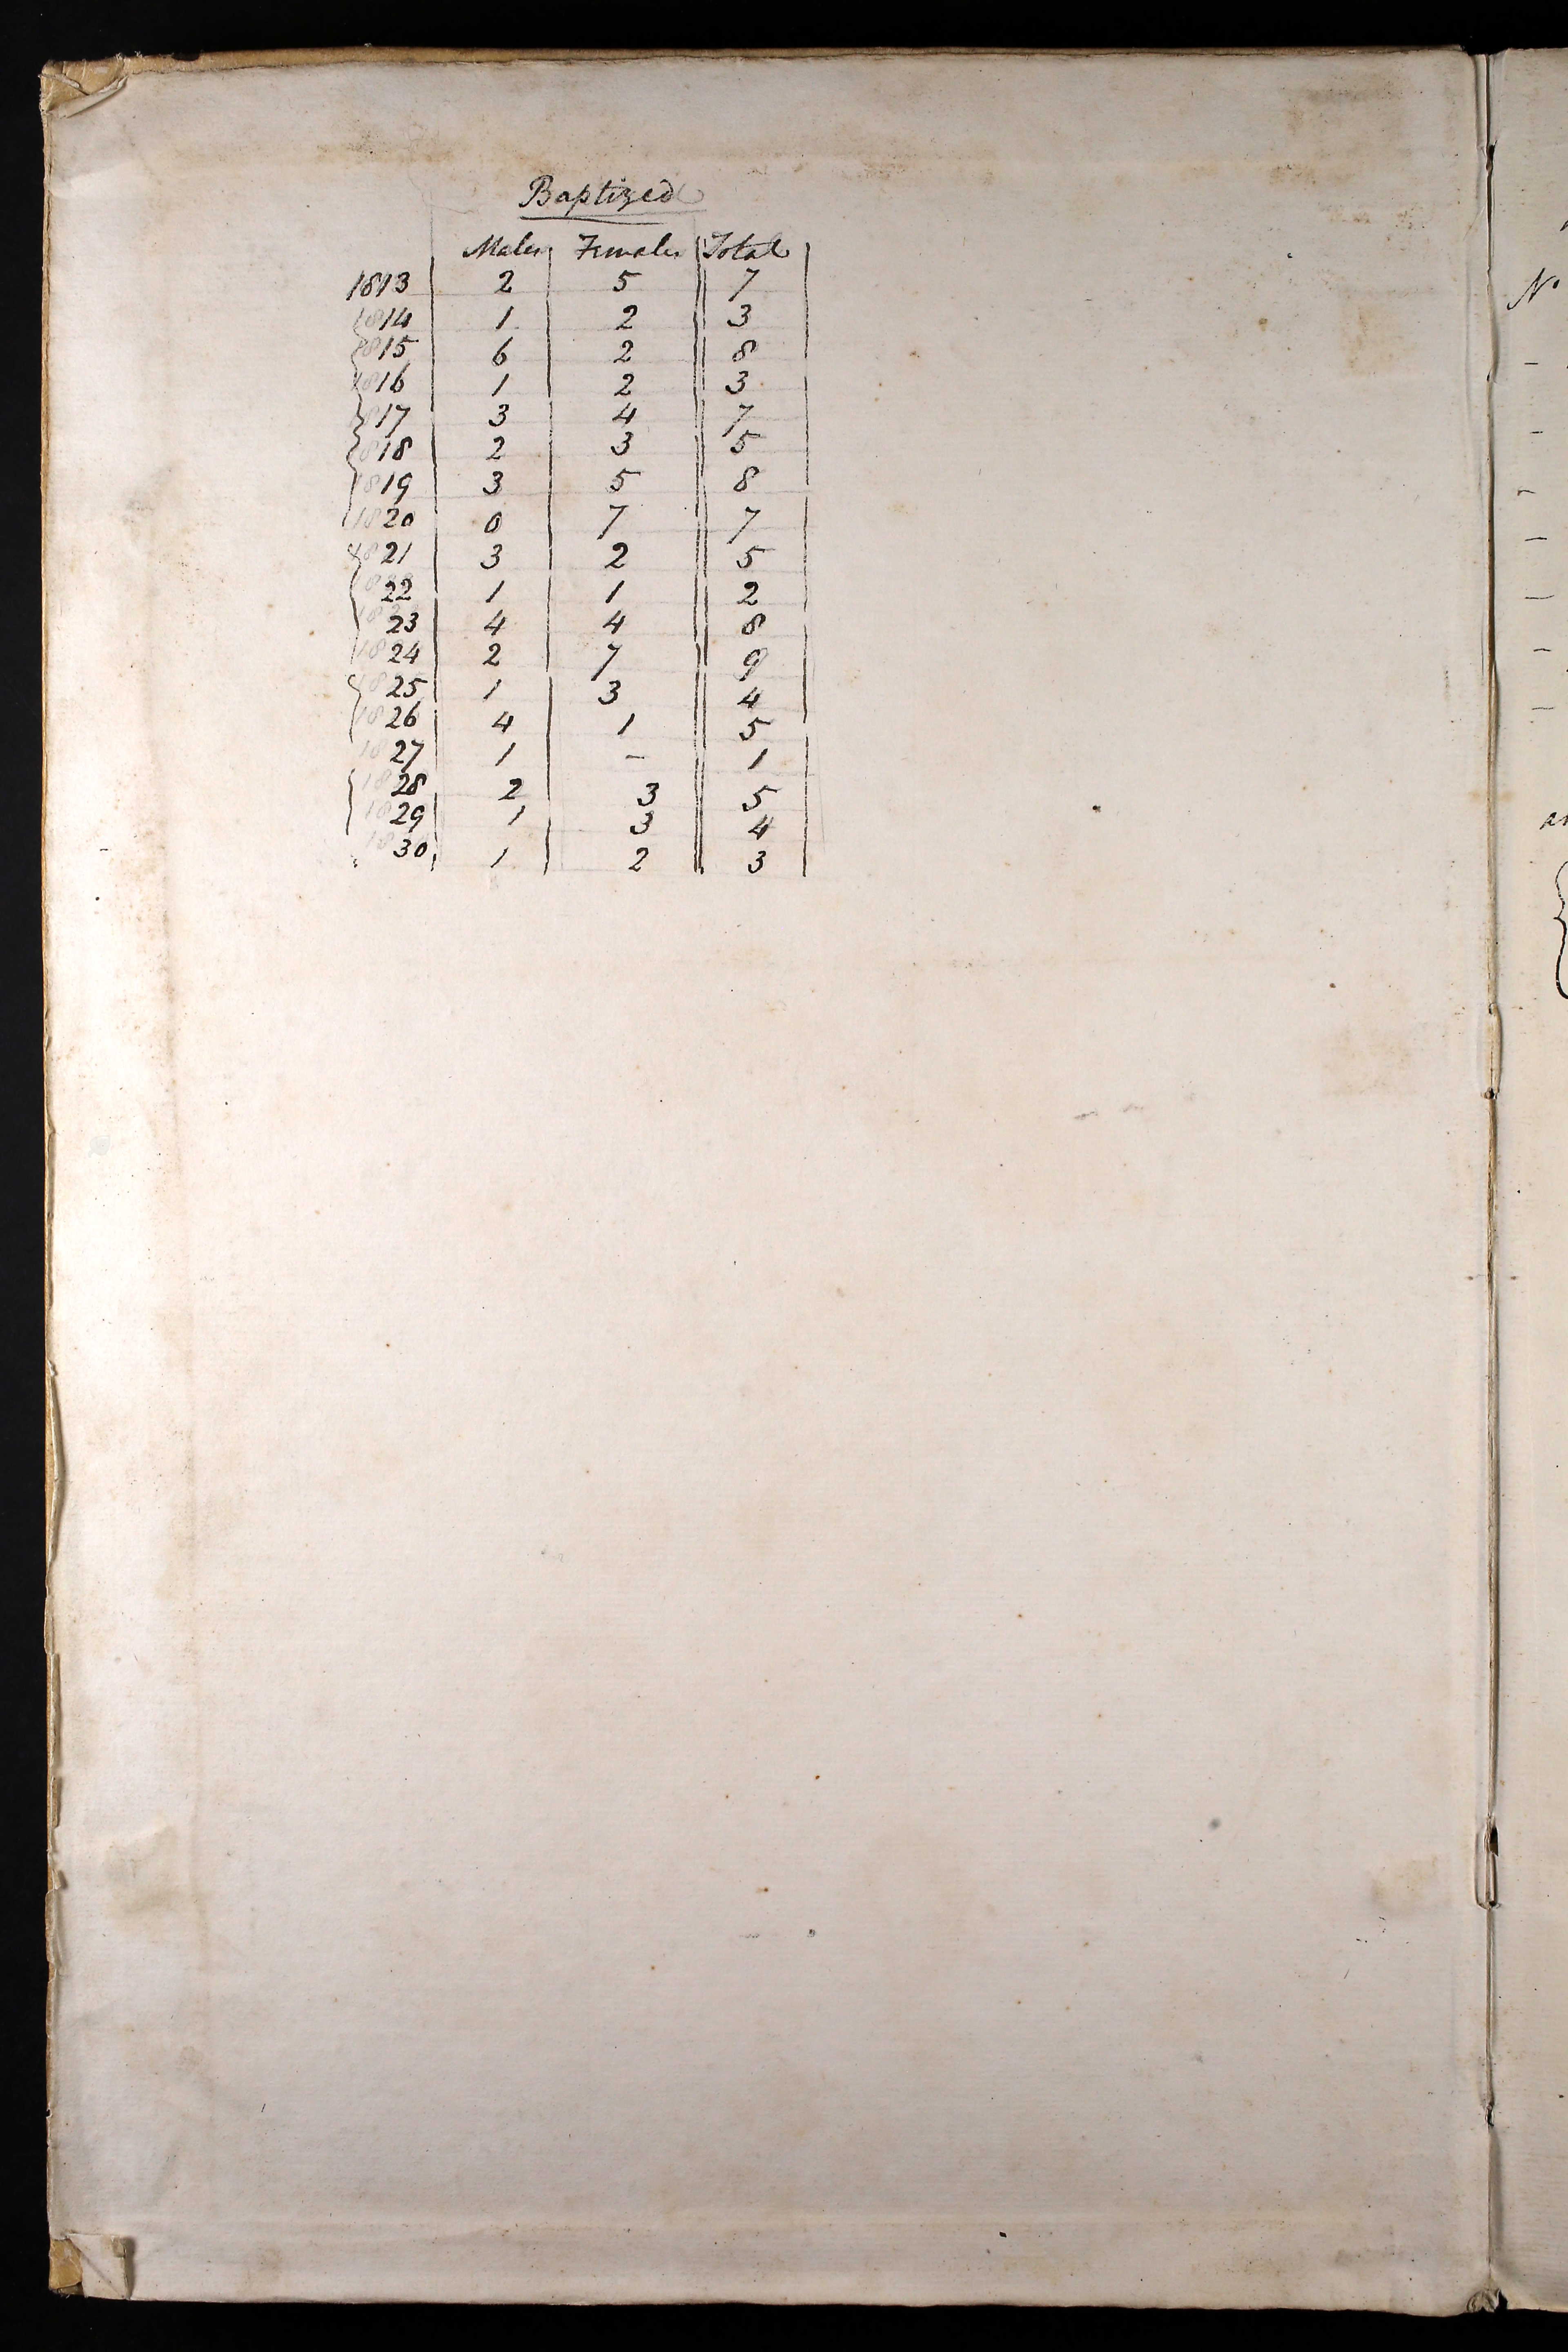 Baptized
Males Females Total
1813 2 5 7
1814 1 2 3
1815 6 2 8
1816 1 2 3
1817 3 4 7
1818 2 3 5
1819 3 5 8
1820 0 7 7
1821 3 2 5
1822 1 1 2
1823 4 4 8
1824 2 7 9
1825 1 3 4
1826 4 1 5
1827 1 – 1
1828 2 3 5
1829 1 3 4
1830 1 2 3
No